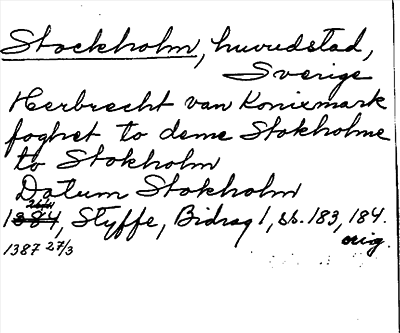 Stockholm, huvudstad,
Sverige
Herbrecht van Konixmark
foghet to deme Stokholme
to Stokholm
Datum Stokholm
1384, Styffe, Bidrag 1, ss. 183, 184.
1387 27/3 orig.